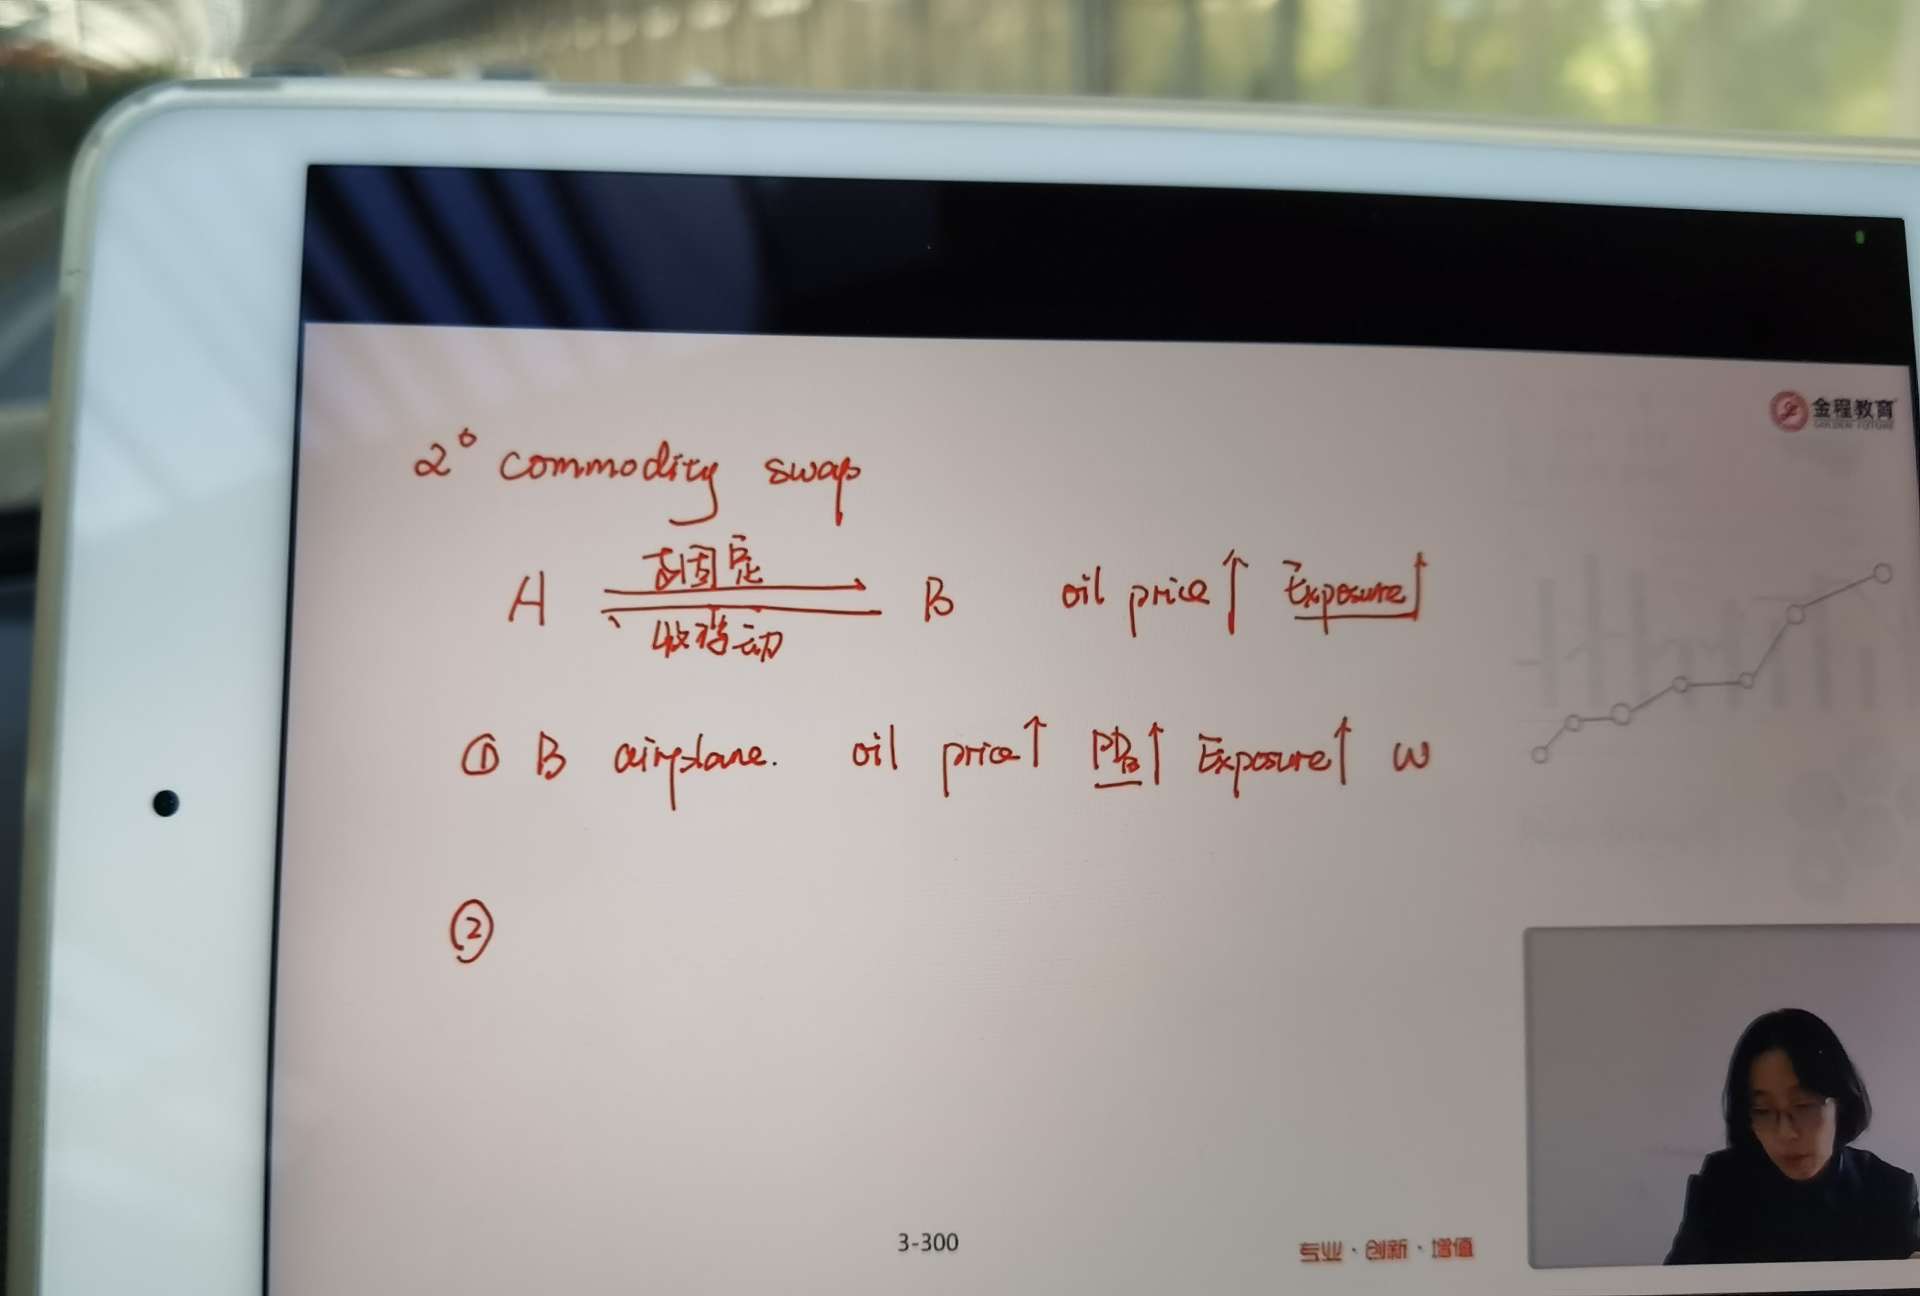 金程教育
GOLDEN FUTURE
2° commodity swap
支固定
A B oil price↑ Exposure↑
收浮动
① B airplane. oil price↑ PD_B↑ Exposure↑ W
②
3-300
专业·创新·增值